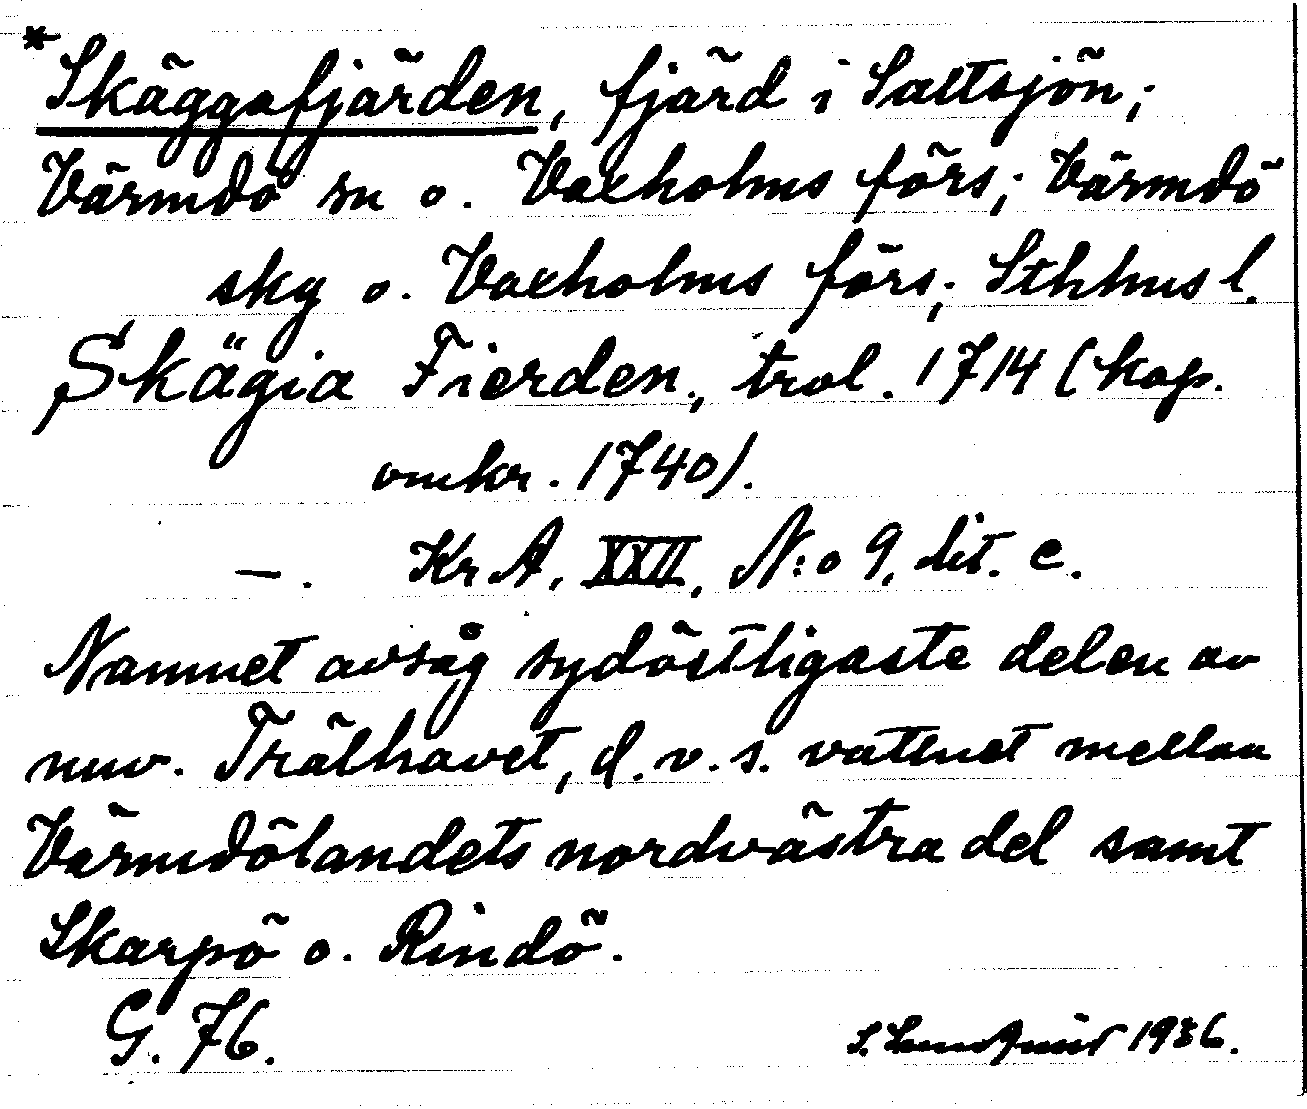 *Skäggafjärden, fjärd i Saltsjön;
Värmdö sn o. Vaxholms förs; Värmdö
skg o. Vaxholms förs; Sthlms l.
Skägia Fierden, trol. 1714 (kop.
omkr. 1740).
—. KrA, XXII, N:o 9, lit. c.
Namnet avsåg sydöstligaste delen av
nuv. Trälhavet, d.v.s. vattnet mellan
Värmdölandets nordvästra del samt
Skarpö o. Rindö.
G. 76.
S. 1936.